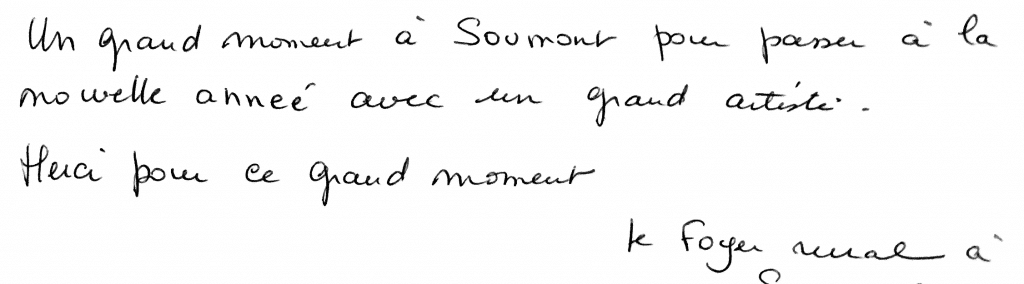 Un grand moment à Soumont pour passer à la
nouvelle anneé avec un grand artiste.
Merci pour ce grand moment
le Foyer rural à